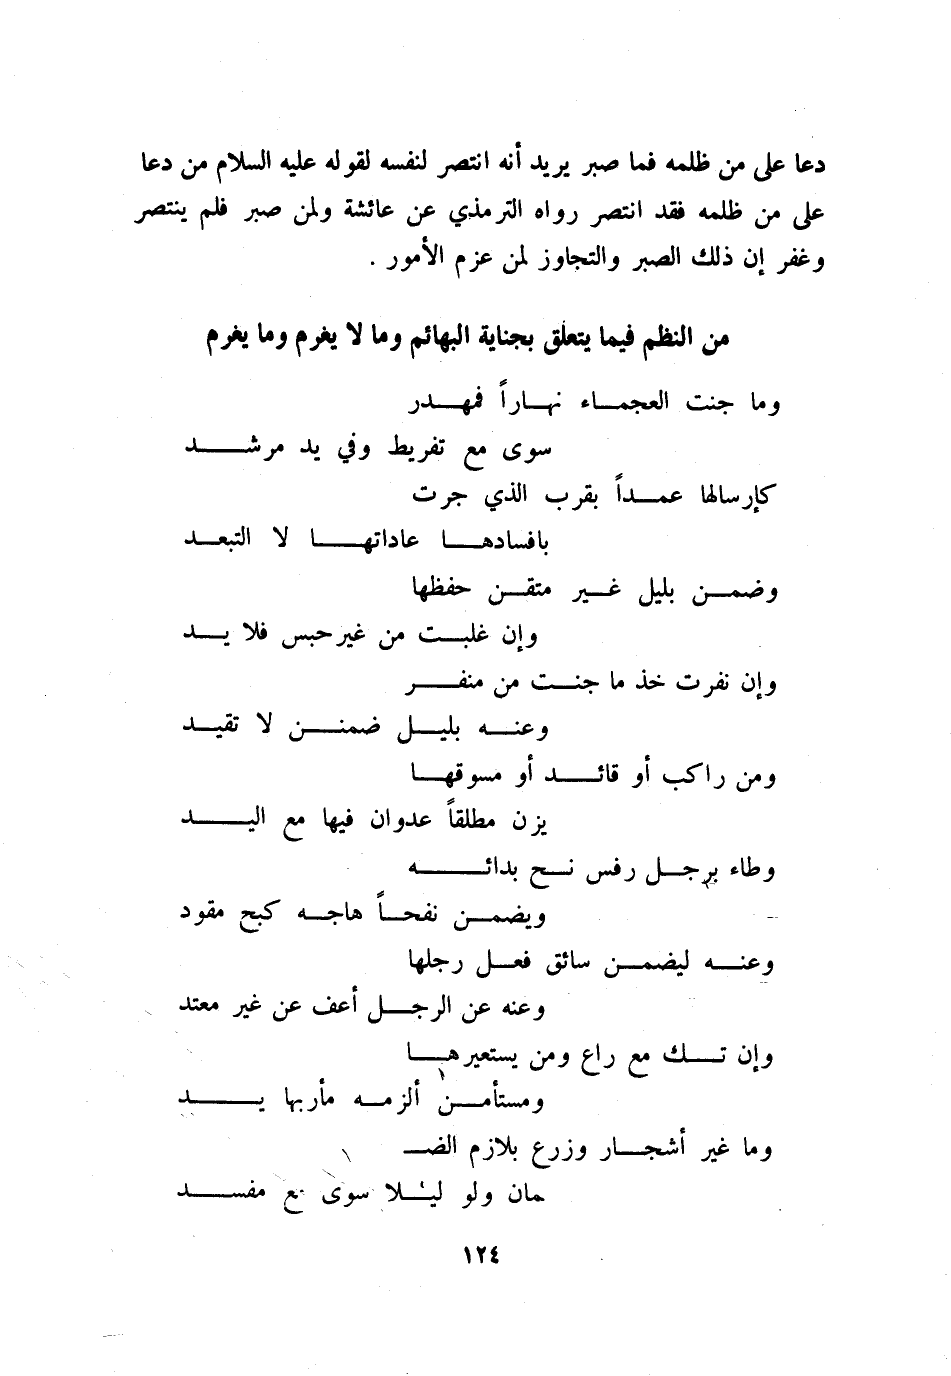 دعا على من ظلمه فما صبر يريد أنه انتصر لنفسه لقوله عليه السلام من دعا
على من ظلمه فقد انتصر رواه الترمذي عن عائشة ولمن صبر فلم ينتصر
وغفر إن ذلك الصبر والتجاوز لمن عزم الأمور .
من النظم فيما يتعلق بجناية البهائم وما لا يغرم وما يغرم
وما جنت العجماء نهاراً فمهدر
سوى مع تفريط وفي يد مرشد
كإرسالها عمداً بقرب الذي جرت
بافسادها عاداتها لا التبعد
وضمن بليل غير متقن حفظها
وإن غلبت من غير حبس فلا يد
وإن نفرت خذ ما جنت من منفر
وعنه بليل ضمنن لا تقيد
ومن راكب أو قائد أو مسوقها
يزن مطلقاً عدوان فيها مع اليد
وطاء برجل رفس نح بدائه
ويضمن نفحاً هاجه كبح مقود
وعنه ليضمن سائق فعل رجلها
وعنه عن الرجل أعف عن غير معتد
وإن تك مع راع ومن يستعيرها
ومستأمن ألزمه مأربها يد
وما غير أشجار وزرع بلازم الضـ
ـمان ولو ليلا سوى مع مفسد
١٢٤